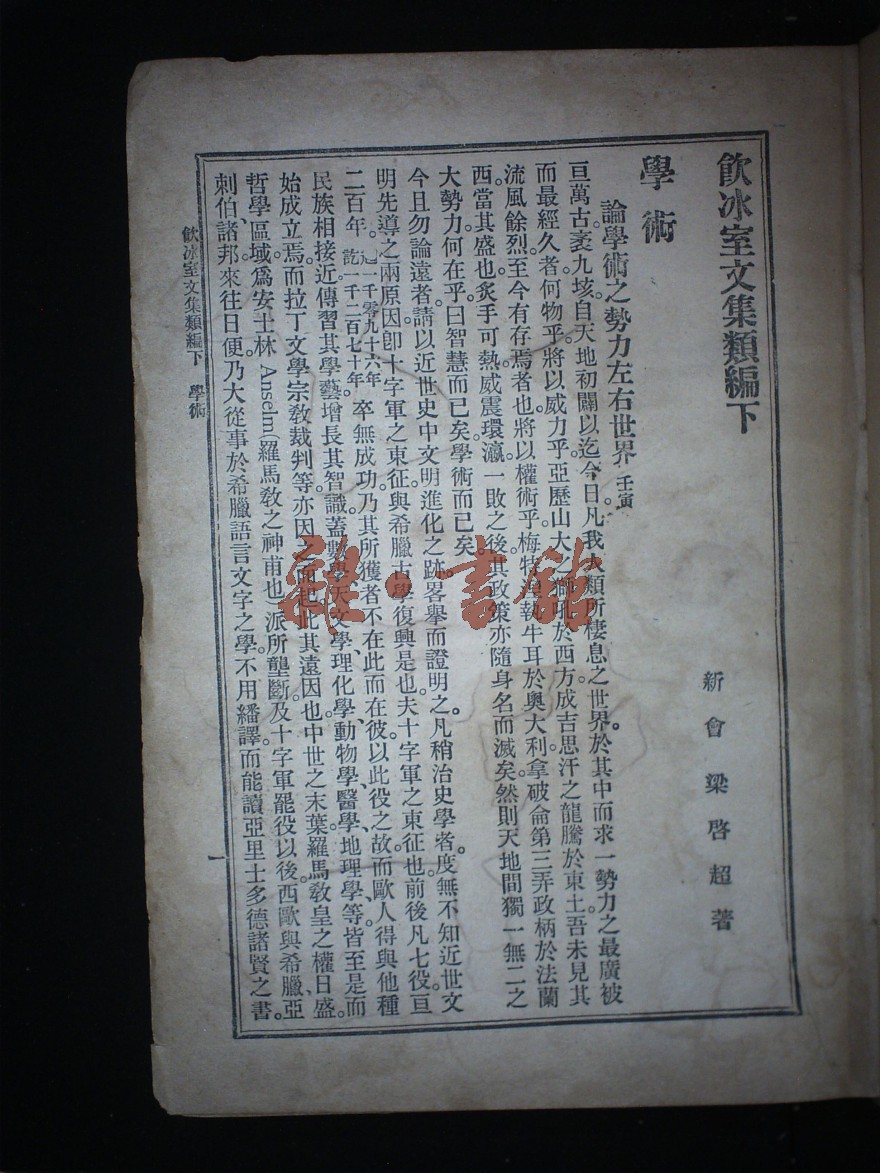 飲冰室文集類編下
新會 梁啓超著
學術
論學術之勢力左右世界 壬寅
亘萬古袤九垓。自天地初闢以迄今日。凡我人類所棲息之世界。於其中而求一勢力之最廣被
而最經久者何物乎。將以威力乎。亞歷山大之獅吼於西方。成吉思汗之龍騰於東土。吾未見其
流風餘烈。至今有存焉者也。將以權術乎。梅特涅執牛耳於奧大利。拿破侖第三弄政柄於法蘭
西。當其盛也。炙手可熱。威震環瀛。一敗之後。其政策亦隨身名而滅矣。然則天地間獨一無二之
大勢力何在乎。曰智慧而已矣。學術而已矣。
今且勿論遠者。請以近世史中文明進化之跡。畧擧而證明之。凡稍治史學者。度無不知近世文
明先導之兩原因。卽十字軍之東征。與希臘古學復興是也。夫十字軍之東征也。前後凡七役。亘
二百年。起一千零九十六年訖一千二百七十年。卒無成功。乃其所獲者。不在此而在彼。以此役之故。而歐人得與他種
民族相接近。傳習其學藝。增長其智識。蓋數學、天文學、理化學、動物學、醫學、地理學、等。皆至是而
始成立焉。而拉丁文學宗敎裁判等。亦因之而起。此其遠因也。中世之末葉。羅馬敎皇之權日盛。
哲學區域。爲安士林 Anselm(羅馬敎之神甫也)派所壟斷。及十字軍罷役以後。西歐與希臘、亞
剌伯、諸邦。來往日便。乃大從事於希臘語言文字之學。不用繙譯。而能讀亞里士多德諸賢之書。
飲冰室文集類編下 學術
一
雜·書館